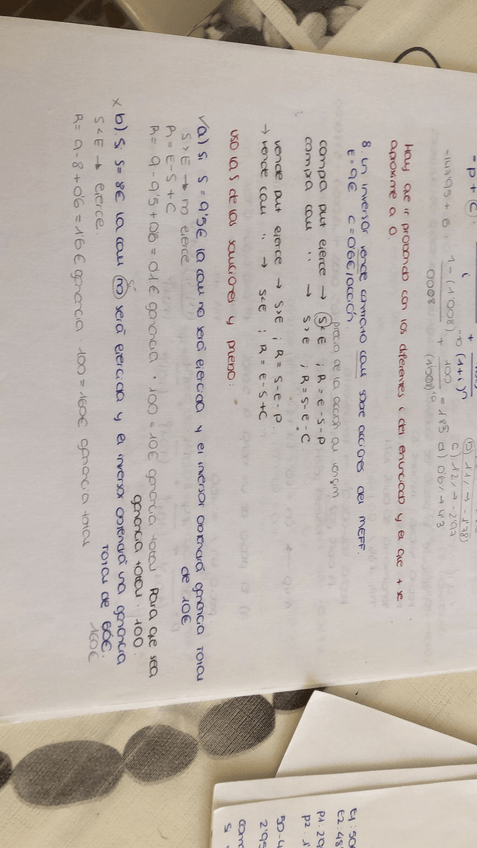 = p + c) :
-14795 + 6 · 1 - (1'008)^-10 + 100 = 183
0'008 (1'008)^10
(1+i)^n
b) 11% → -1'38)
c) 12% → -2'97
d) 0'6% → 4'3
Hay que ir probando con los diferentes i del enunciado y el que + se
aproxime a 0.
8 Un inversor vende contrato call sobre acciones del MEFF.
E = 9€ C = 0'6€/acción
precio de la acción al
compra put ejerce → S<E ; R = E-S-P
compra call :: → S>E ; R = S-E-C
vende put ejerce → S>E ; R = S-E-P
→ vende call :: → S<E ; R = E-S+C
uso las S de las soluciones y pruebo:
✓a) si S = 9'5€ la call no será ejercida y el inversor obtendrá ganancia total
de 10€
S > E → no ejerce
R = E-S+C
R = 9-9'5+0'6 = 0'1€ ganancia · 100 = 10€ ganancia total Para que sea
ganancia total · 100.
x b) Si S = 8€ la call no será ejercida y el inversor obtendrá una ganancia
total de 60€.
S < E → ejerce.
R = 9-8+0'6 = 1'6€ ganancia · 100 = 160€ ganancia total
160€
E1: 50
E2: 48
P1: 29
P2:
50-4
2'95
com
S